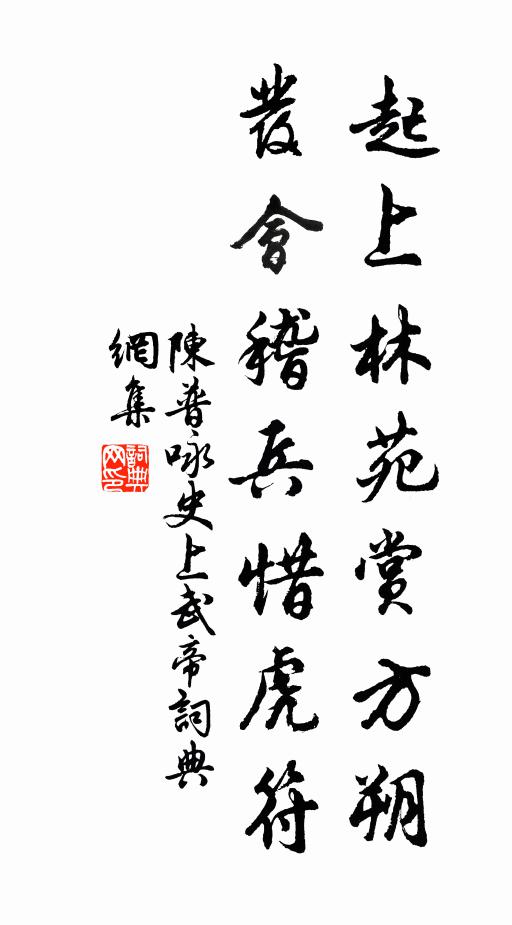 起上林苑賞方朔
發會稽兵惜虎符
陳普咏史上武帝詞典
網集
詞典網印